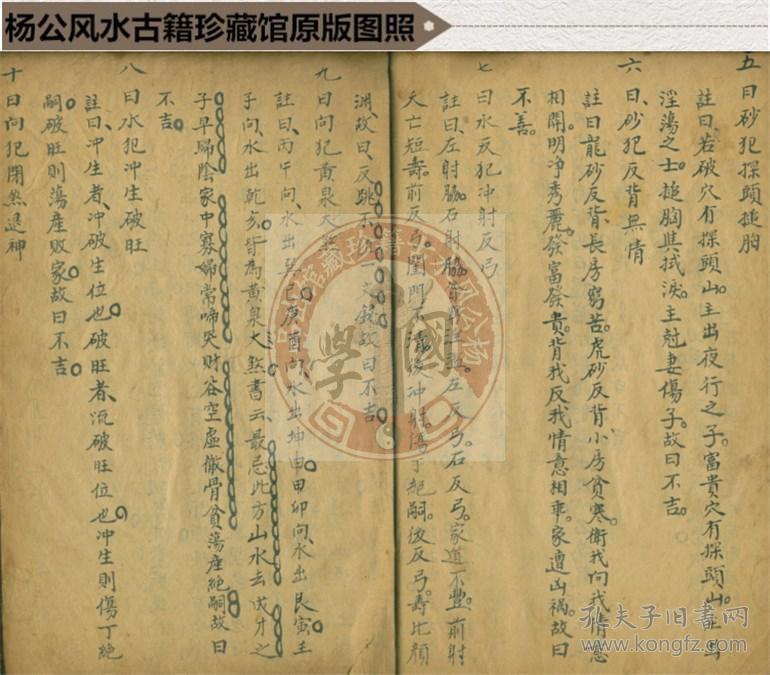 杨公风水古籍珍藏馆原版图照
五曰砂犯探頭搥胸
註曰若破穴有探頭山主出夜行之子富貴穴有探頭山主出
淫蕩之士搥胸與拭淚主尅妻傷子故曰不吉
六曰砂犯反背無情
註曰龍砂反背長房窮苦虎砂反背小房貧寒衛我向我情意
相關明净秀麗發富發貴背我反我情意相乖家遭凶禍故曰
不善
七曰水反犯冲射反弓
註曰左射脇右射脇左反弓石反弓家道不豐前射
夭亡短壽前反弓閨門不清後冲射傷丁絕嗣後反弓壽比顏
渊故曰反跳不吉
八曰水犯冲生破旺
註曰冲生者冲破生位也破旺者流破旺位也冲生則傷丁絕
嗣破旺則蕩産敗家故曰不吉
九曰向犯黄泉大煞
註曰丙午向水出巽巳庚酉向水出坤申甲卯向水出艮寅壬
子向水出乾亥皆為黄泉大煞書云最忌此方山水去成才之
子早歸陰家中寡婦常啼哭財谷空虛徹骨貧蕩産絕嗣故曰
不吉
十曰向犯閉煞退神
國學
孔夫子旧書网
www.kongfz.com